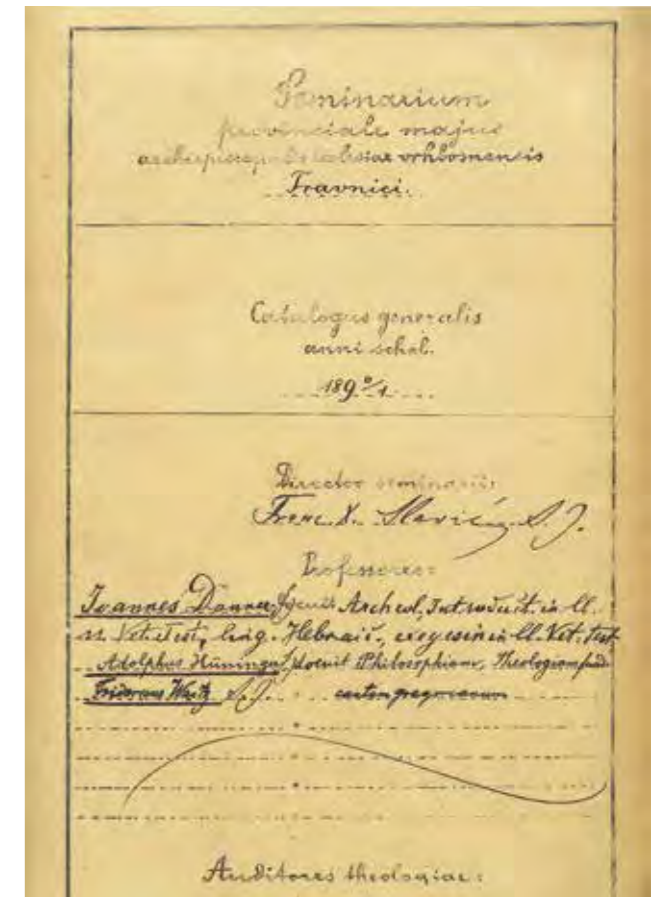 Seminarium
provinciale majus
archiepiscopalis ecclesiae vrhbosnensis
Travnici.
Catalogus generalis
anni schol.
189 0/1
Director seminarii:
Franc. X. Slavić, S. J.
Professores:
Joannes Danner, docuit Archeol., Introduct. in ll.
ss. Vet. Test., ling. Hebraic., exegesin in ll. Vet. Test.
Adolphus docuit Philosophiam, Theologiam fund.
Fridericus S. J. cantum gregorianum
Auditores theologiae: